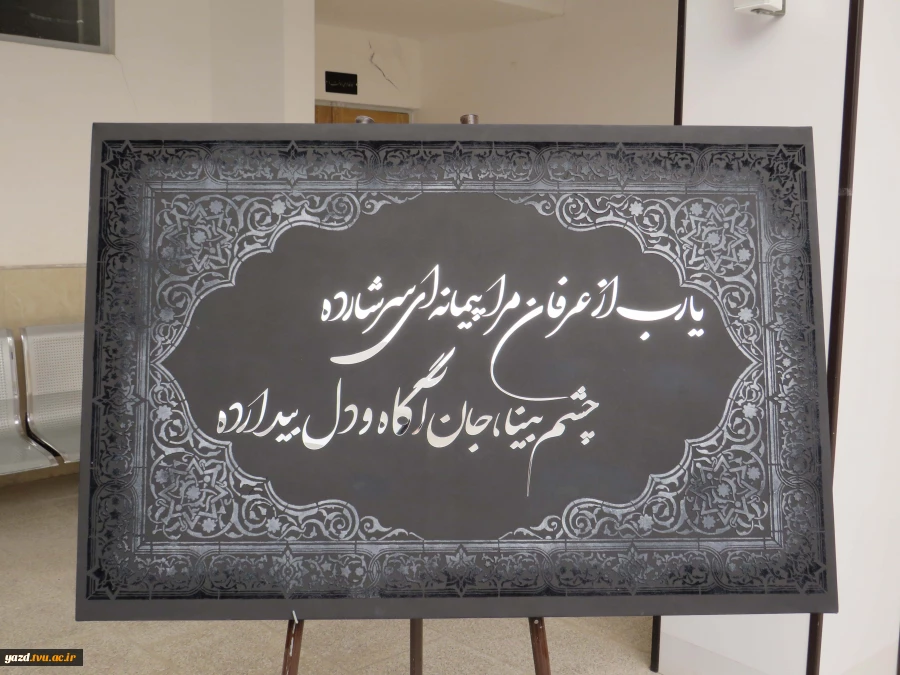 یارب از عرفان مرا پیمانه‌ای سرشار ده
چشم بینا، جان آگاه و دل بیدار ده
yazd.tvu.ac.ir